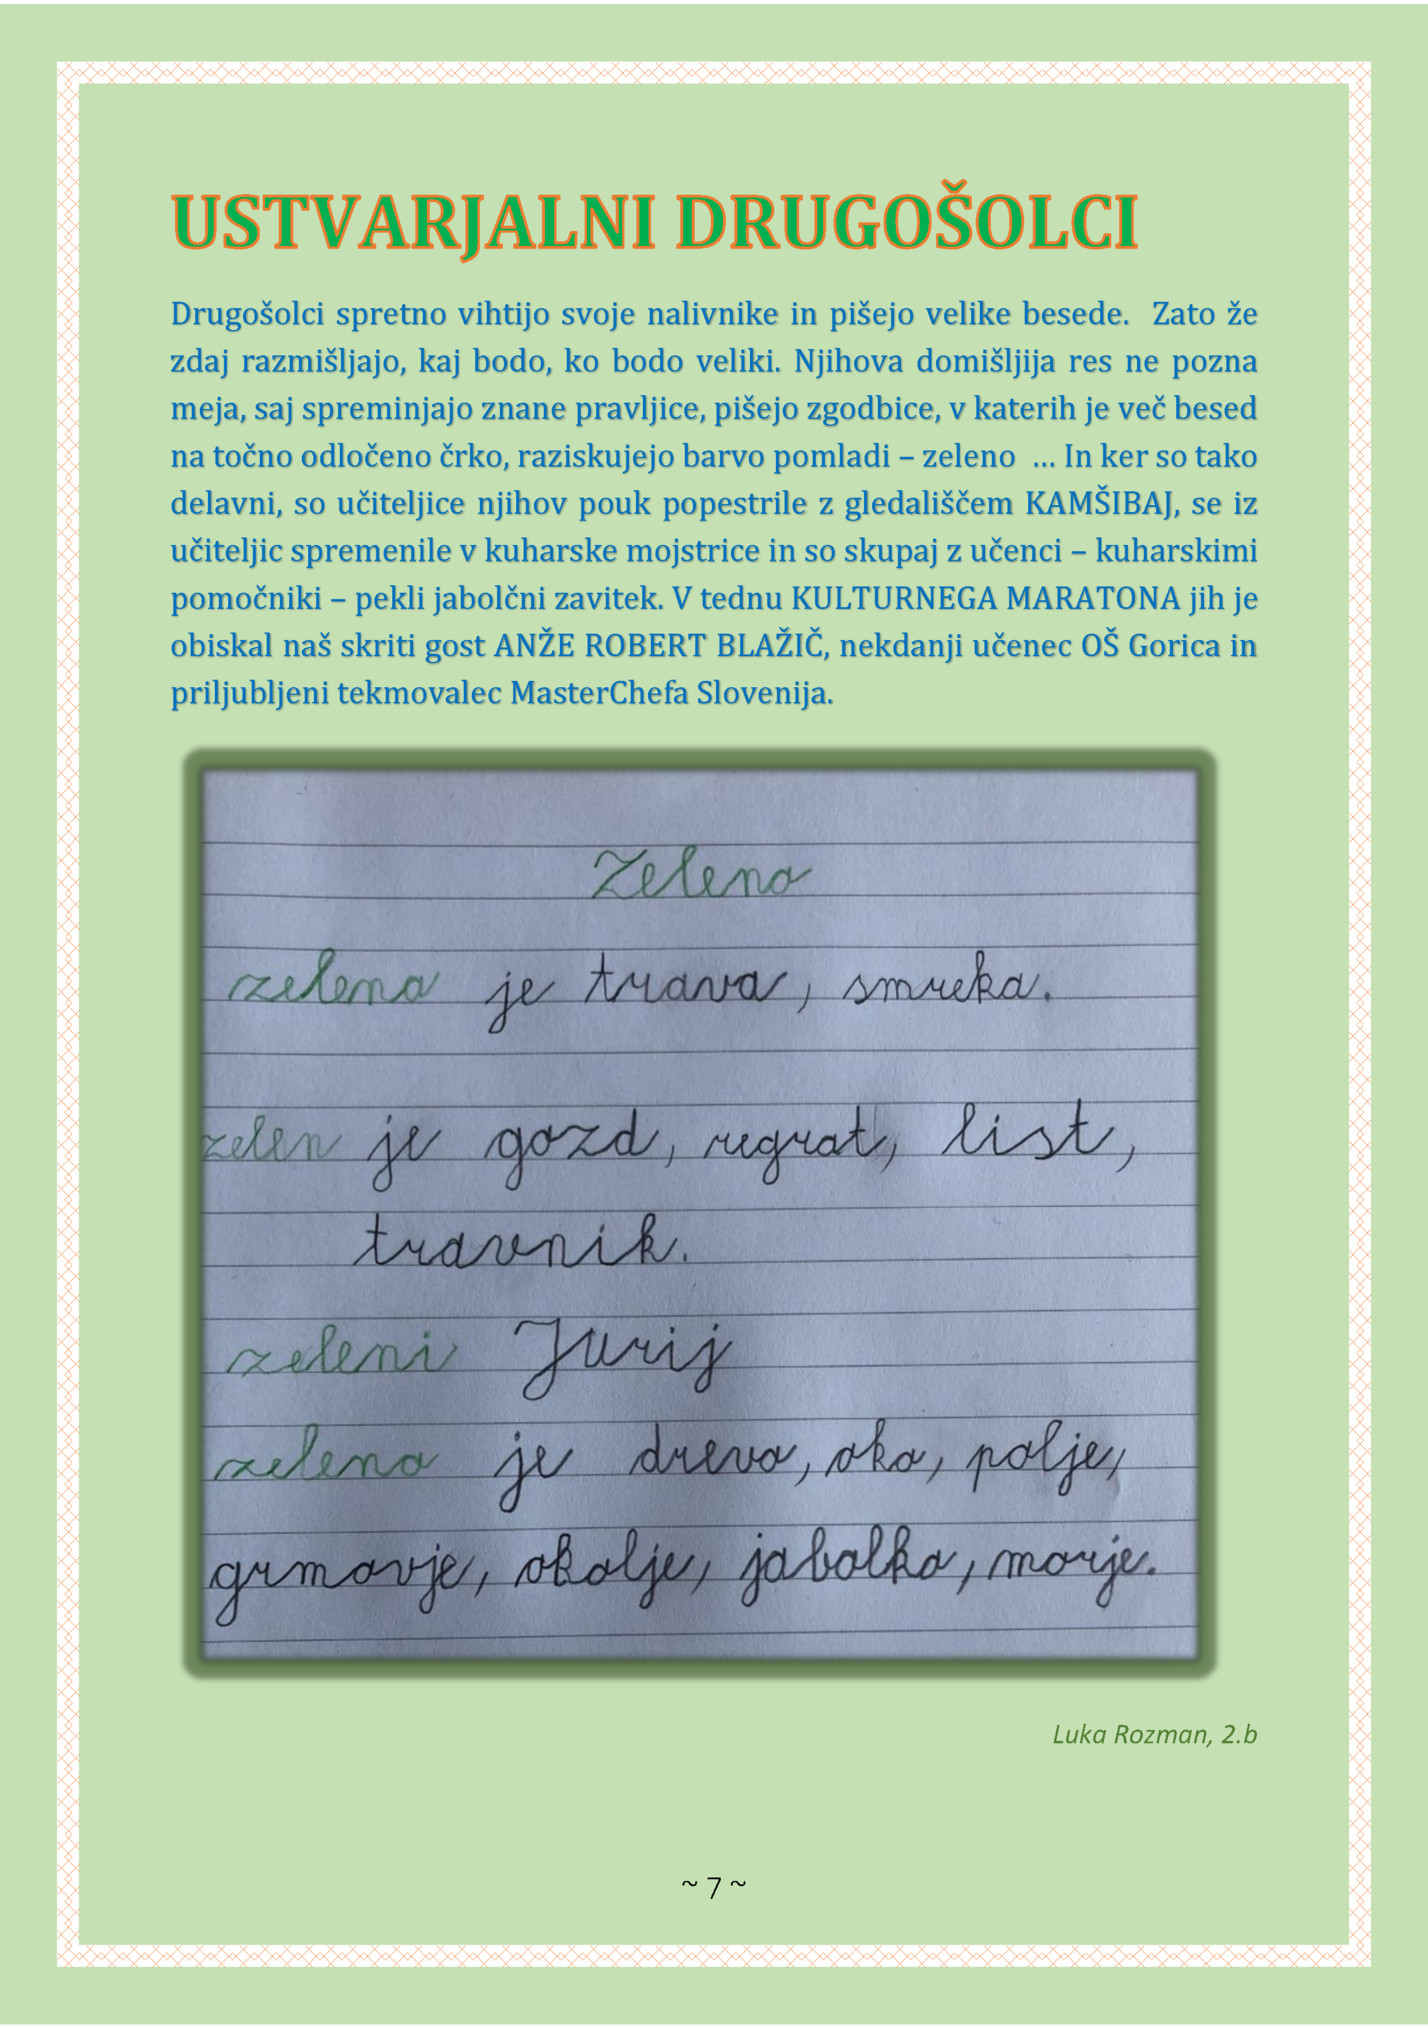 USTVARJALNI DRUGOŠOLCI
Drugošolci spretno vihtijo svoje nalivnike in pišejo velike besede. Zato že
zdaj razmišljajo, kaj bodo, ko bodo veliki. Njihova domišljija res ne pozna
meja, saj spreminjajo znane pravljice, pišejo zgodbice, v katerih je več besed
na točno odločeno črko, raziskujejo barvo pomladi – zeleno … In ker so tako
delavni, so učiteljice njihov pouk popestrile z gledališčem KAMŠIBAJ, se iz
učiteljic spremenile v kuharske mojstrice in so skupaj z učenci – kuharskimi
pomočniki – pekli jabolčni zavitek. V tednu KULTURNEGA MARATONA jih je
obiskal naš skriti gost ANŽE ROBERT BLAŽIČ, nekdanji učenec OŠ Gorica in
priljubljeni tekmovalec MasterChefa Slovenija.
Zeleno
zelena je trava, smreka.
zelen je gozd, regrat, list,
travnik.
zeleni Jurij
zeleno je drevo, oko, polje,
grmovje, okolje, jabolko, morje.
Luka Rozman, 2.b
~ 7 ~